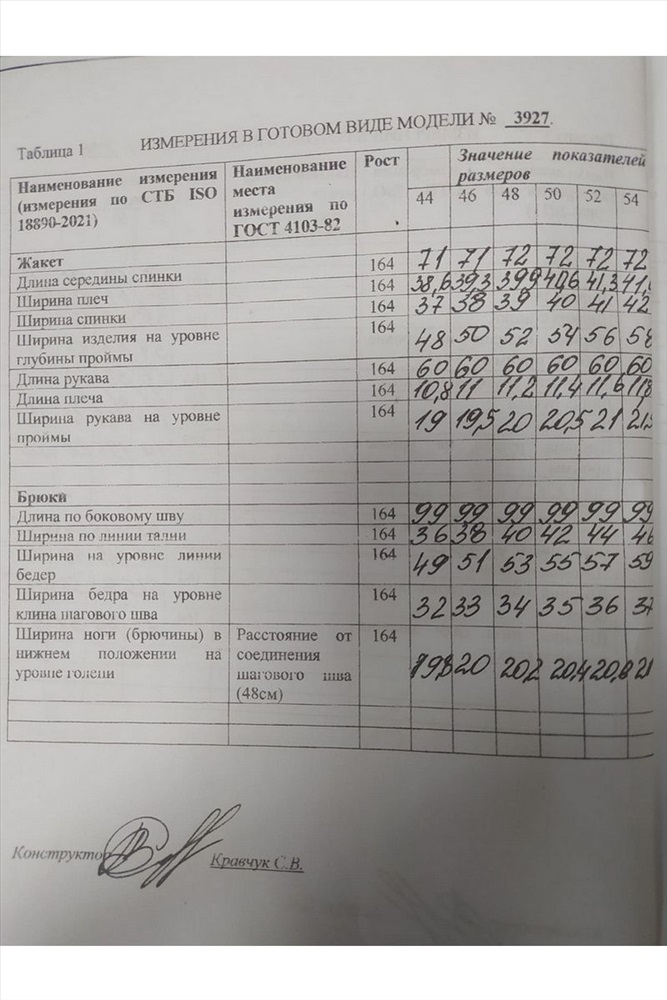 Таблица 1
ИЗМЕРЕНИЯ В ГОТОВОМ ВИДЕ МОДЕЛИ № 3927.
Наименование измерения (измерения по СТБ ISO 18890-2021) Наименование места измерения по ГОСТ 4103-82 Рост Значение показателей размеров
44 46 48 50 52 54
Жакет
Длина середины спинки 164 71 71 72 72 72 72
Ширина плеч 164 38,6 39,3 39,9 40,6 41,3
Ширина спинки 164 37 38 39 40 41 42
Ширина изделия на уровне глубины проймы 164 48 50 52 54 56 58
Длина рукава 164 60 60 60 60 60 60
Длина плеча 164 10,8 11 11,2 11,4 11,6 11,8
Ширина рукава на уровне проймы 164 19 19,5 20 20,5 21
Брюки
Длина по боковому шву 164 99 99 99 99 99 99
Ширина по линии талии 164 36 38 40 42 44 46
Ширина на уровне линии бедер 164 49 51 53 55 57 59
Ширина бедра на уровне клина шагового шва 164 32 33 34 35 36 37
Ширина ноги (брючины) в нижнем положении на уровне голени Расстояние от соединения шагового шва (48см) 164 19,8 20 20,2 20,4
Конструктор Кравчук С.В.